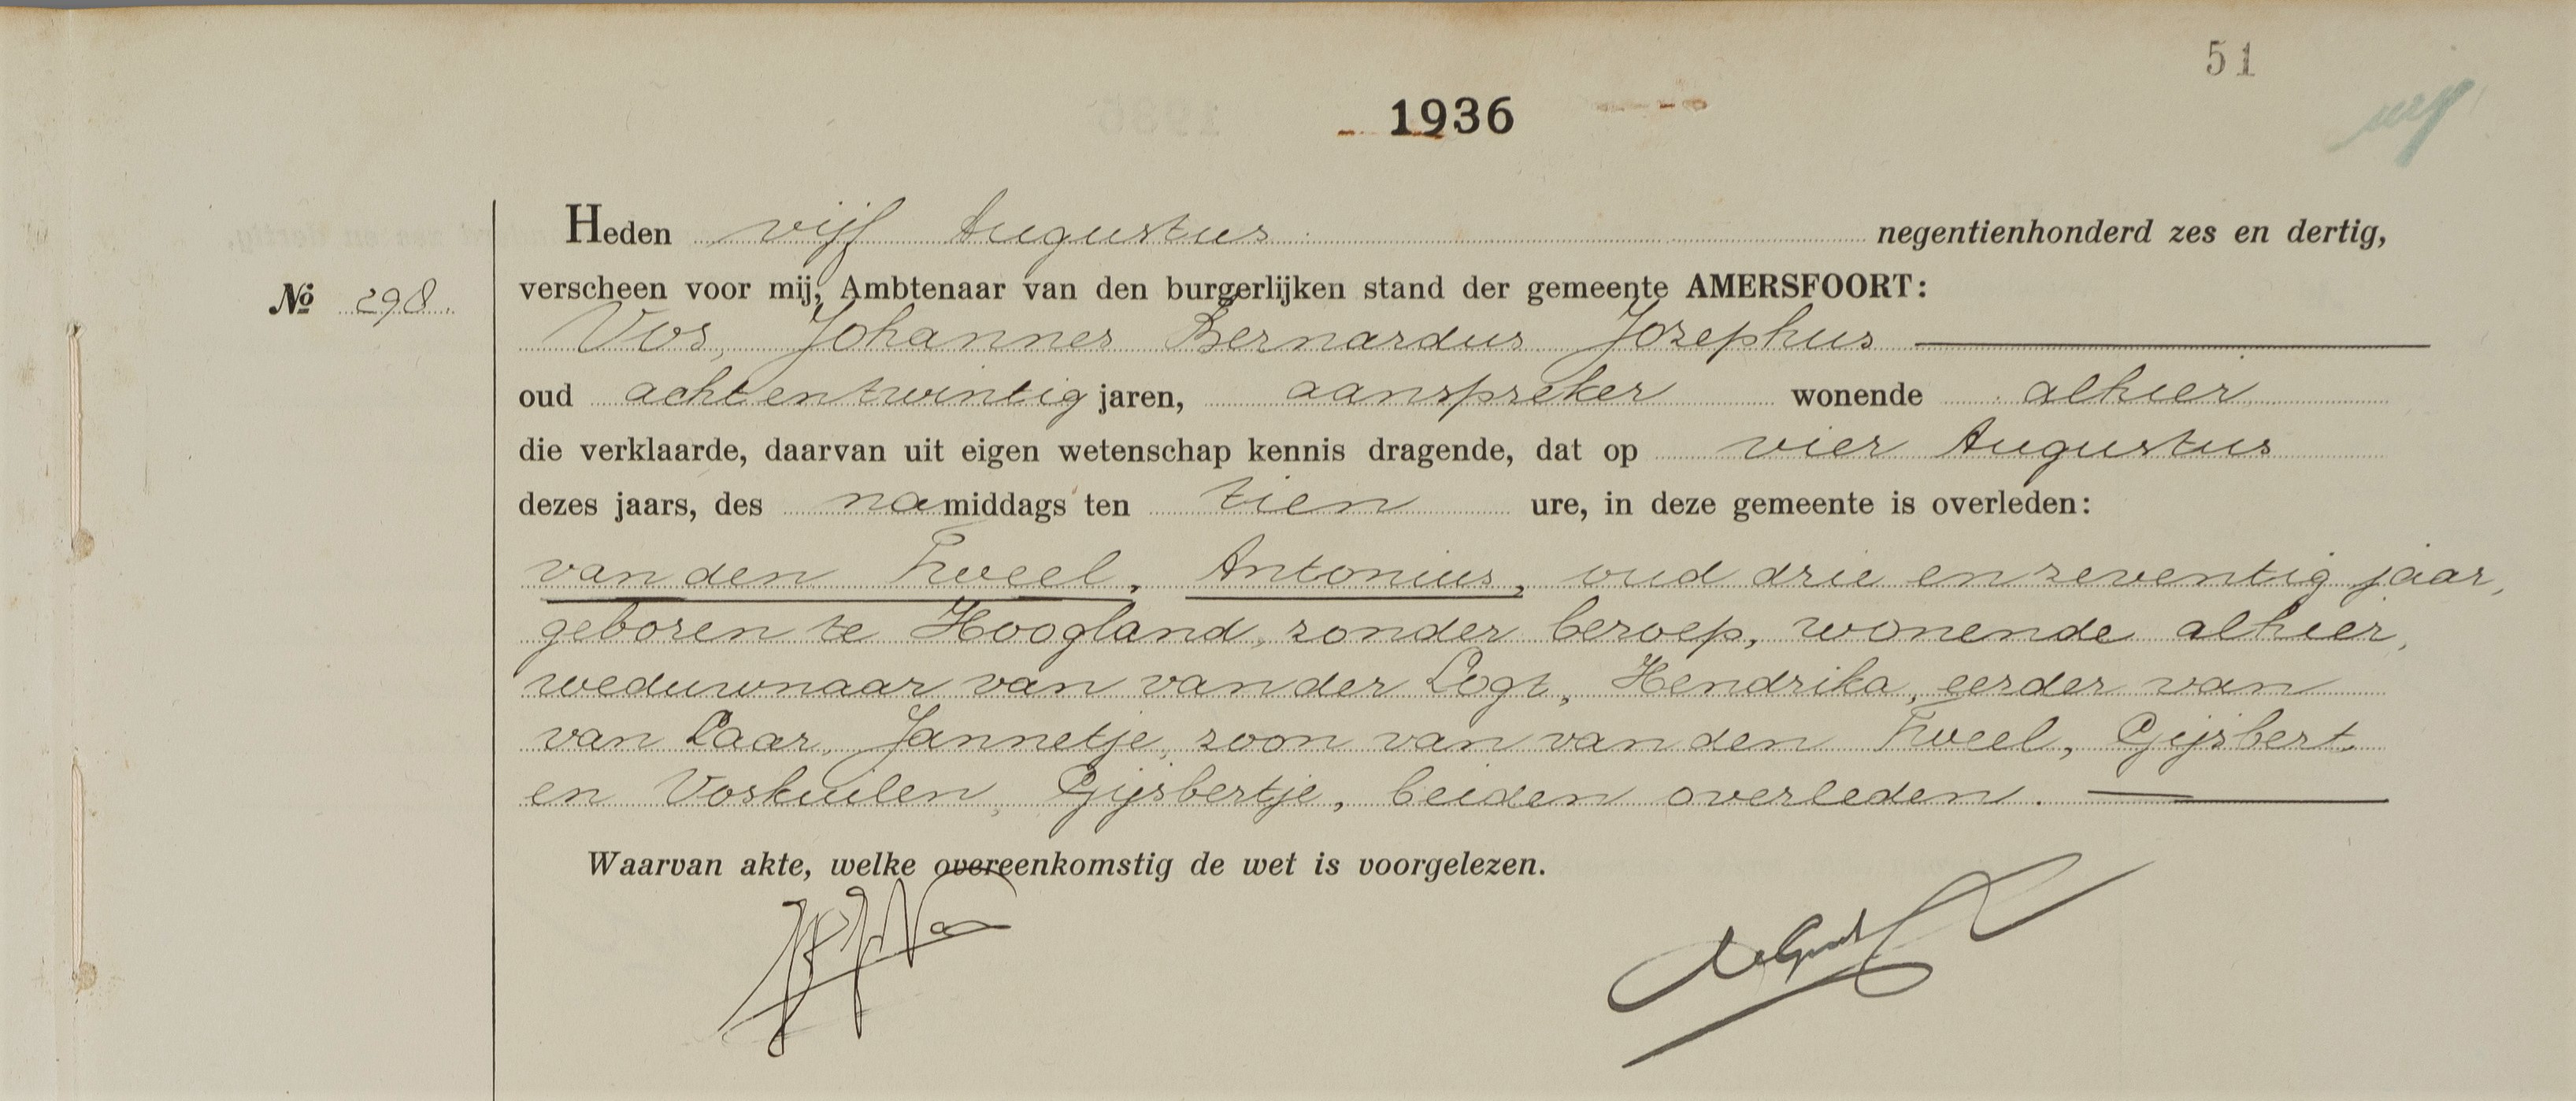 51
1936
Heden vijf Augustus negentienhonderd zes en dertig,
№ 298.
verscheen voor mij, Ambtenaar van den burgerlijken stand der gemeente AMERSFOORT:
Vos, Johannes Bernardus Josephus
oud achtentwintig jaren, aanspreker wonende alhier
die verklaarde, daarvan uit eigen wetenschap kennis dragende, dat op vier Augustus
dezes jaars, des namiddags ten tien ure, in deze gemeente is overleden:
van den Tweel, Antonius, oud drie en zeventig jaar,
geboren te Hoogland, zonder beroep, wonende alhier,
weduwnaar van van der Logt, Hendrika, eerder van
van Laar, Jannetje, zoon van van den Tweel, Gijsbert,
en Voskuilen, Gijsbertje, beiden overleden.
Waarvan akte, welke overeenkomstig de wet is voorgelezen.
JBJVos